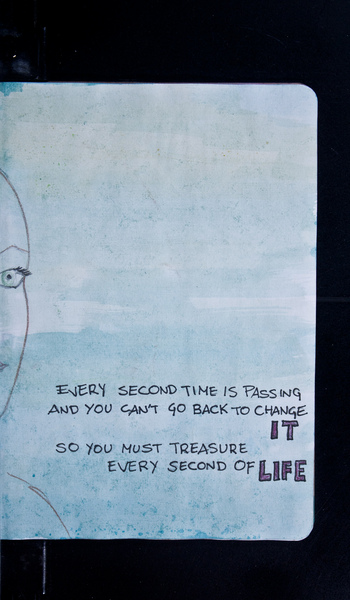 EVERY SECOND TIME IS PASSING
AND YOU CAN'T GO BACK TO CHANGE
IT
SO YOU MUST TREASURE
EVERY SECOND OF LIFE